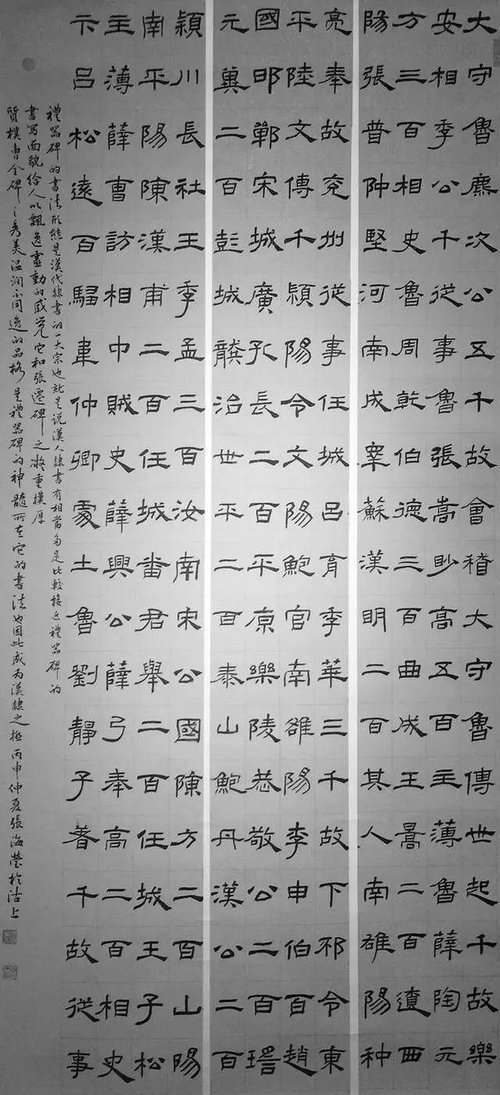 大守魯麃次公五千故會稽大守魯傳世起千故樂
安相季公千從事魯張嵩眇高五百主薄魯薛陶元
方三百相史魯周乾伯德三百曲成王暠二百遼西
陽張普仲堅河南成睾蘇漢明二百其人南雒陽种
亮奉故兗州從事任城呂育季華三千故下邳令東
平陸文傳千潁陽令文陽鮑官南雒陽李申伯百趙
國邯鄲宋城廣孔長二百平原樂陵恭敬公二百瑨
元冀二百彭城龔治世平二百泰山鮑丹漢公二百
潁川長社王季孟三百汝南宋公國陳方二百山陽
南平陽陳漢甫二百任城番君舉二百任城王子松
主薄薛曹訪相中賊史薛興公薛弓奉高二百相史
卞呂松遠百騶韋仲卿處土魯劉靜子著千故從事
禮器碑的書法形態是漢代隸書的一大宗也就是說漢人隸書有相當多是比較接近禮器碑的
書写面貌給人以飄逸靈動的感覺它和張遷碑之凝重樸厚
賢樸曹全碑之秀美温润不同逸的品格是禮器碑的神髓所在它的書法也因此成為漢隸之極丙申仲夏張海瑩於沽上